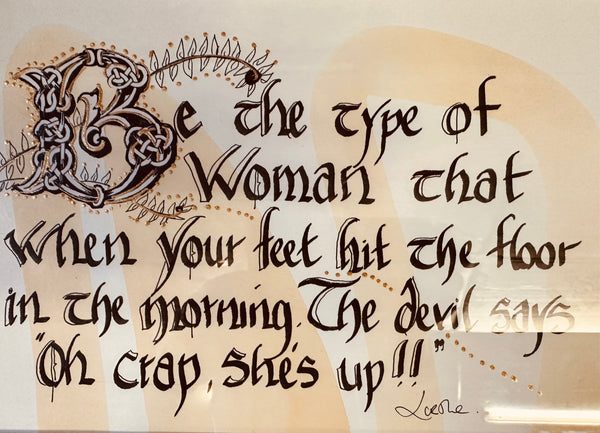 Be the type of
Woman that
when your feet hit the floor
in the morning. The devil says
"Oh crap, she's up!!"